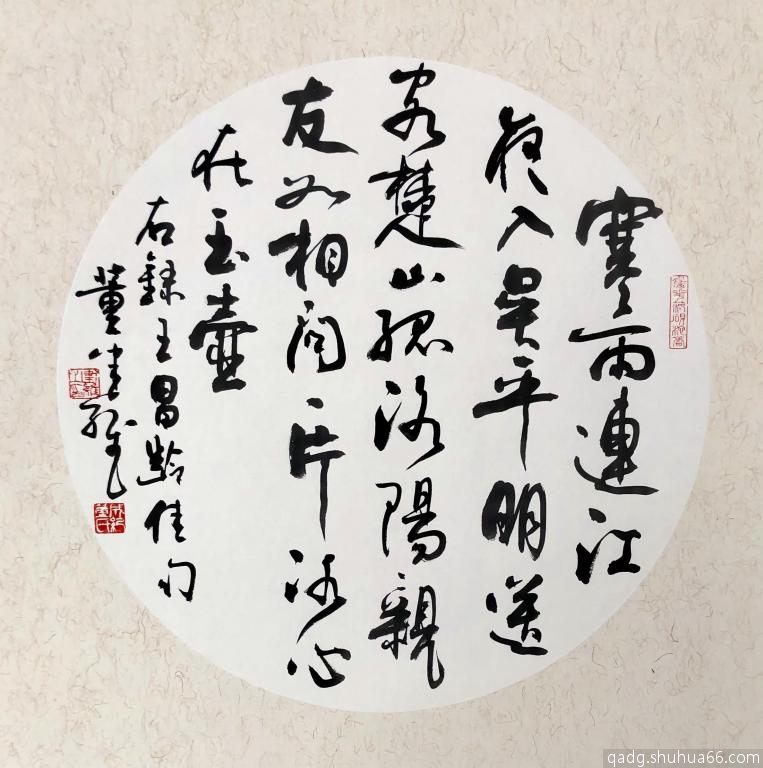 寒雨連江
夜入吴平明送
客楚山孤洛陽親
友如相问一片冰心
在玉壺
右録王昌齡佳句
董
qadg.shuhua66.com